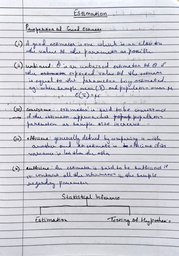 Estimation
Properties of Good Estimator
(i) A good estimator is one which is as close to
the value of the parameter as possible.
(ii) unbiased: θ̂ is an unbiased estimator of θ if
the expected value of the estimator
is equal to the parameter being estimated
eg: when sample mean (x̄) and population mean μ
E(x̄) = μ
(iii) consistency: estimator is said to be consistent
if the estimator approaches population
parameter as sample size increase.
(iv) efficiency: generally defined by comparing it with
another and an estimator is efficient if its
variance is less than the other
(v) sufficiency: An estimator is said to be sufficient if
it contains all the information in the sample
regarding parameter.
Statistical Inference
Estimation
Testing of Hypothesis